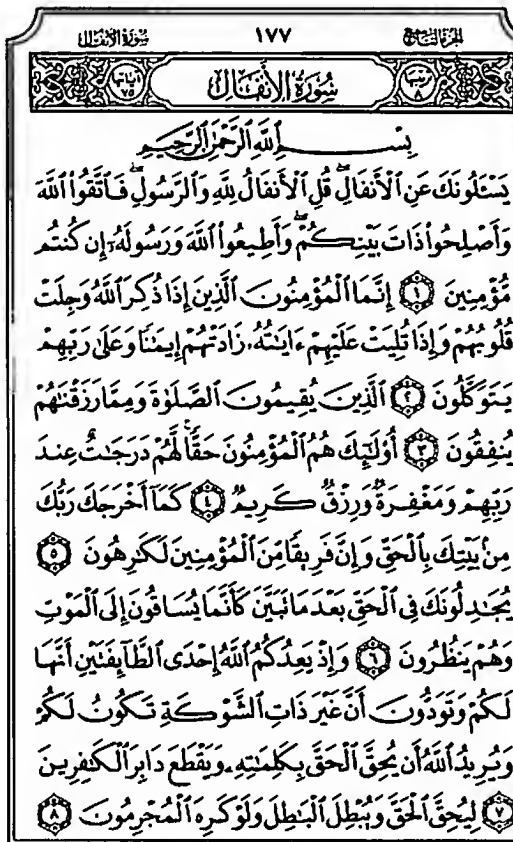 سُورَةُ الأَنفَالِ ١٧٧ الجزء التاسع
آياتها ٧٥ سُورَةُ الأَنفَالِ ترتيبها ٨
بِسْمِ ٱللَّهِ ٱلرَّحْمَٰنِ ٱلرَّحِيمِ
يَسْـَٔلُونَكَ عَنِ ٱلْأَنفَالِۖ قُلِ ٱلْأَنفَالُ لِلَّهِ وَٱلرَّسُولِۖ فَٱتَّقُوا۟ ٱللَّهَ
وَأَصْلِحُوا۟ ذَاتَ بَيْنِكُمْۖ وَأَطِيعُوا۟ ٱللَّهَ وَرَسُولَهُۥٓ إِن كُنتُم
مُّؤْمِنِينَ ١ إِنَّمَا ٱلْمُؤْمِنُونَ ٱلَّذِينَ إِذَا ذُكِرَ ٱللَّهُ وَجِلَتْ
قُلُوبُهُمْ وَإِذَا تُلِيَتْ عَلَيْهِمْ ءَايَٰتُهُۥ زَادَتْهُمْ إِيمَٰنًا وَعَلَىٰ رَبِّهِمْ
يَتَوَكَّلُونَ ٢ ٱلَّذِينَ يُقِيمُونَ ٱلصَّلَوٰةَ وَمِمَّا رَزَقْنَٰهُمْ
يُنفِقُونَ ٣ أُو۟لَٰٓئِكَ هُمُ ٱلْمُؤْمِنُونَ حَقًّاۚ لَّهُمْ دَرَجَٰتٌ عِندَ
رَبِّهِمْ وَمَغْفِرَةٌ وَرِزْقٌ كَرِيمٌ ٤ كَمَآ أَخْرَجَكَ رَبُّكَ
مِنۢ بَيْتِكَ بِٱلْحَقِّ وَإِنَّ فَرِيقًا مِّنَ ٱلْمُؤْمِنِينَ لَكَٰرِهُونَ ٥
يُجَٰدِلُونَكَ فِى ٱلْحَقِّ بَعْدَ مَا تَبَيَّنَ كَأَنَّمَا يُسَاقُونَ إِلَى ٱلْمَوْتِ
وَهُمْ يَنظُرُونَ ٦ وَإِذْ يَعِدُكُمُ ٱللَّهُ إِحْدَى ٱلطَّآئِفَتَيْنِ أَنَّهَا
لَكُمْ وَتَوَدُّونَ أَنَّ غَيْرَ ذَاتِ ٱلشَّوْكَةِ تَكُونُ لَكُمْ
وَيُرِيدُ ٱللَّهُ أَن يُحِقَّ ٱلْحَقَّ بِكَلِمَٰتِهِۦ وَيَقْطَعَ دَابِرَ ٱلْكَٰفِرِينَ
٧ لِيُحِقَّ ٱلْحَقَّ وَيُبْطِلَ ٱلْبَٰطِلَ وَلَوْ كَرِهَ ٱلْمُجْرِمُونَ ٨